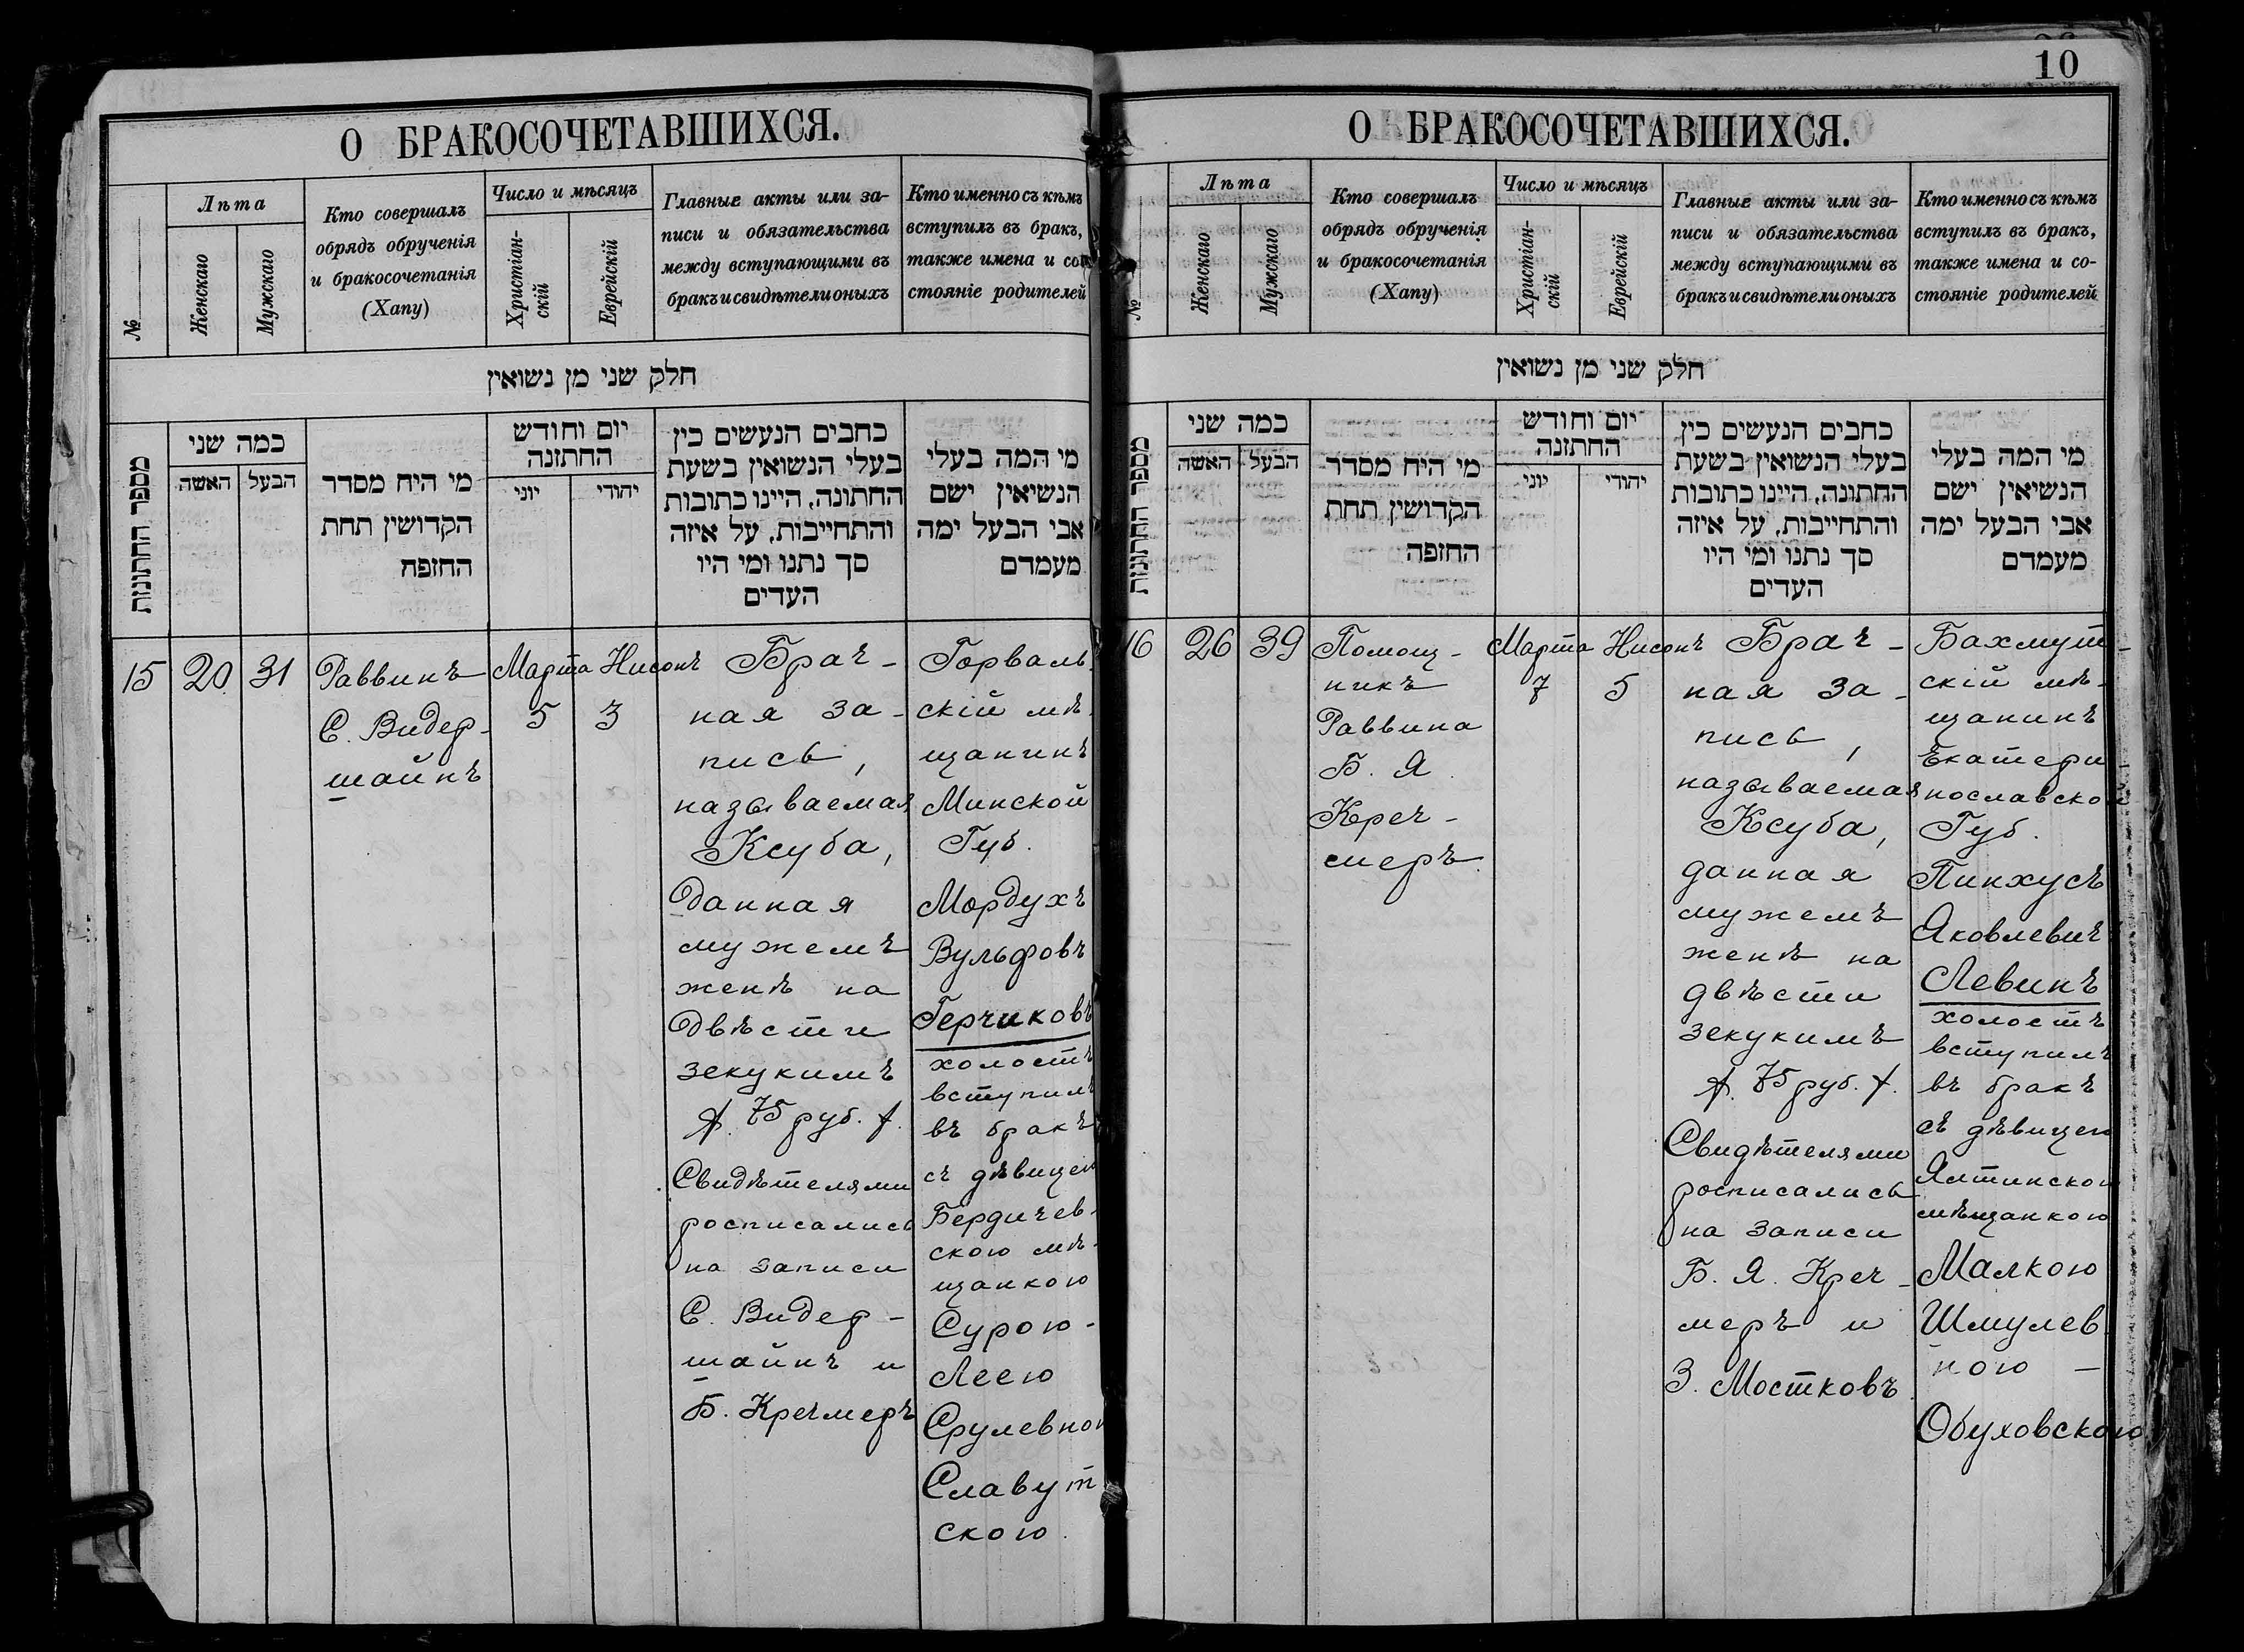 10
О БРАКОСОЧЕТАВШИХСЯ.
№
Лѣта
Женскаго
Мужскаго
Кто совершалъ
обрядъ обрученія
и бракосочетанія
(Хапу)
Число и мѣсяцъ
Христіан-
скій
Еврейскій
Главные акты или за-
писи и обязательства
между вступающими въ
бракъ и свидѣтели оныхъ
Кто именно съ кѣмъ
вступилъ въ бракъ,
также имена и со
стояніе родителей
חלק שני מן נשואין
מספר החתונות
כמה שני
הבעל
האשה
מי היח מסדר
הקדושין תחת
החזפח
יום וחודש
החתזנה
יהודי
יוני
כחבים הנעשים כין
בעלי הנשואין בשעת
החתונה, היינו כתובות
והתחייבות, על איזה
סך נתנו ומי היו
העדים
מי המה בעלי
הנשיאין ישם
אבי הבעל ימה
מעמדם
15
20
31
Раввинъ
С. Видер-
шайнъ
Марта
5
Нисонъ
3
Брач-
ная за-
пись,
называемая
Ксуба,
данная
мужемъ
женѣ на
двѣсти
зекукимъ
/. 75 руб. /.
Свидѣтелями
росписались
на записи
С. Видер-
шайнъ и
Б. Кречмеръ
Горваль
скій мѣ-
щанинъ
Минской
Губ.
Мордухъ
Вульфовъ
Герчиковъ
холостъ
вступилъ
въ бракъ
съ дѣвицею
Бердичев-
скою мѣ-
щанкою
Сурою-
Леею
Срулевною
Славут
скою.
О БРАКОСОЧЕТАВШИХСЯ.
№
Лѣта
Женскаго
Мужскаго
Кто совершалъ
обрядъ обрученія
и бракосочетанія
(Хапу)
Число и мѣсяцъ
Христіан-
скій
Еврейскій
Главные акты или за-
писи и обязательства
между вступающими въ
бракъ и свидѣтели оныхъ
Кто именно съ кѣмъ
вступилъ въ бракъ,
также имена и со-
стояніе родителей
חלק שני מן נשואין
מספר החתונות
כמה שני
הבעל
האשה
מי היח מסדר
הקדושין תחת
החזפה
יום וחודש
החתזנה
יהודי
יוני
כחבים הנעשים כין
בעלי הנשואין בשעת
החתונה, היינו כתובות
והתחייבות, על איזה
סך נתנו ומי היו
העדים
מי המה בעלי
הנשיאין ישם
אבי הבעל ימה
מעמדם
16
26
39
Помощ-
никъ
Раввина
Б. Я.
Креч-
меръ.
Марта
7
Нисонъ
5
Брач-
ная за-
пись,
называемая
Ксуба,
данная
мужемъ
женѣ на
двѣсти
зекукимъ
/. 75 руб. /.
Свидѣтелями
росписались
на записи
Б. Я. Креч-
меръ и
З. Мостковъ.
Бахмут-
скій мѣ-
щанинъ
Екатери
нославской
Губ.
Пинхусъ
Яковлевичъ
Левинъ
холостъ
вступилъ
въ бракъ
съ дѣвицею
Ялтинскою
мѣщанкою
Малкою
Шмулев
ною -
Обуховскою